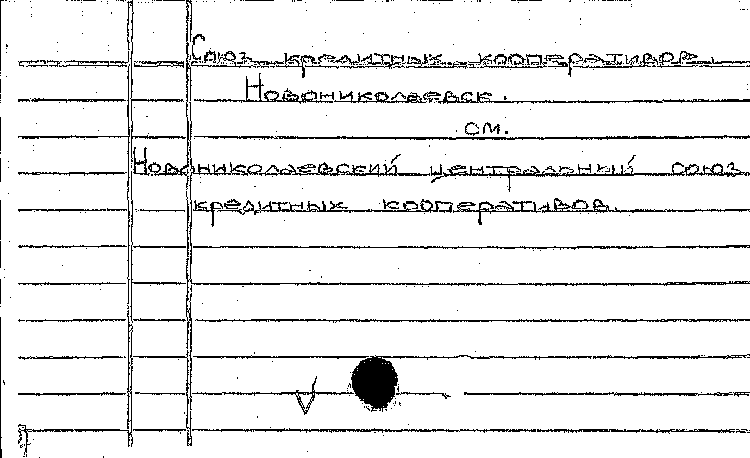 Союз кредитных кооперативов.
Новониколаевск.
см.
Новониколаевский центральный союз
кредитных кооперативов.